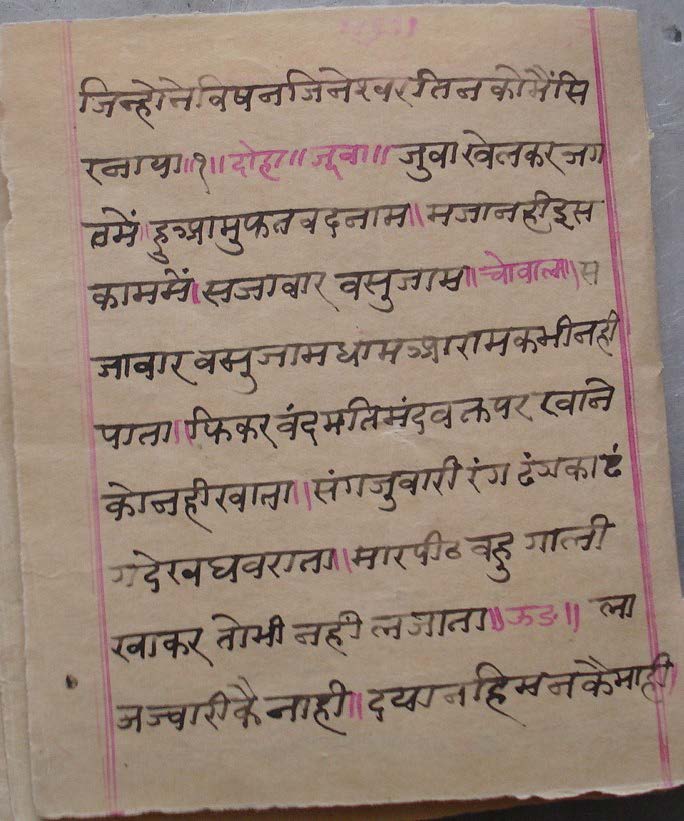 जिन्होनेविषनजिनेश्वरतिनकोमैंसि
रनाया॥१॥दोहा॥जूवा॥जुवाखेलकरजग
तमें॥हुआमुफतवदनाम॥मजानहीइस
काममें॥सजावारवसुजाम॥चोवाला॥स
जावारवसुजामधामआरामकभीनही
पाता॥फिकरवंदमतिमंदवक्तपरखाने
कोनहीखाता॥संगजुवारीरंगढंगकाढं
गदेखघवराता॥मारपीठवहुगाली
खाकरतोभीनहीलजाता॥ऊङ॥ला
जज्वारीकैनाही॥दयानहिमनकैमाही